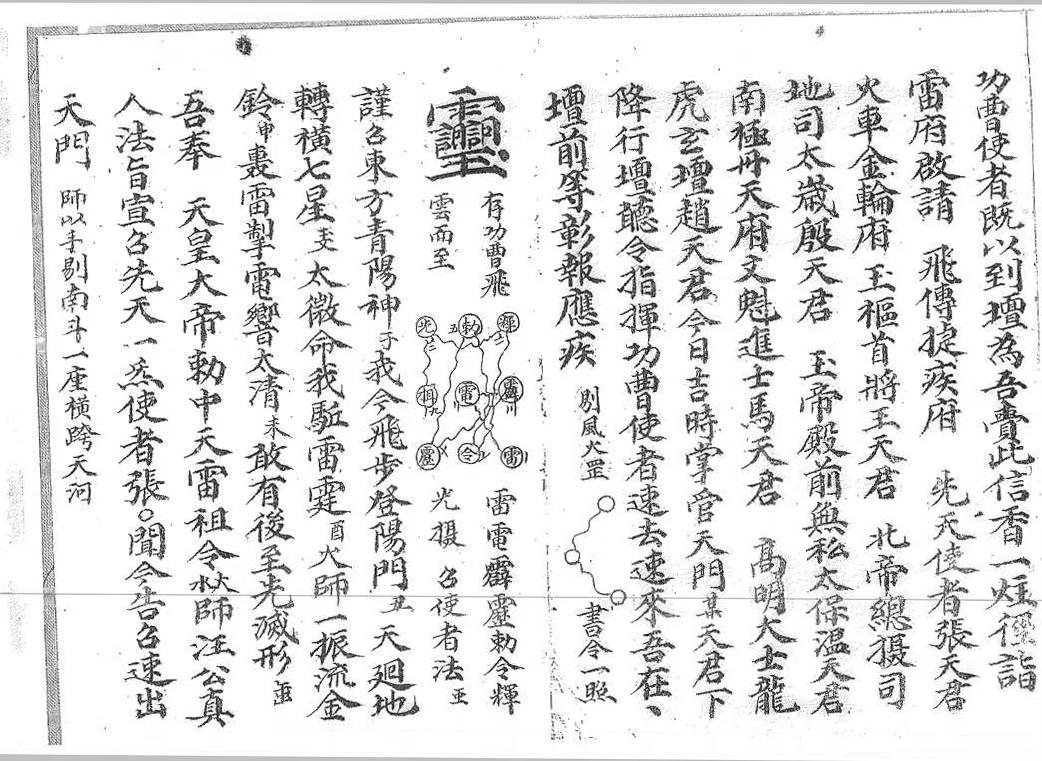 功曹使者既以到壇為吾賷此信香一炷徑詣
雷府啟請 飛傳捷疾府 先天使者張天君
火車金輪府 玉樞首將王天君 北帝總摄司
地司太歲殷天君 玉帝殿前與私太保温天君
南極丹天府文魁進士馬天君 髙明大士龍
虎玄壇趙天君今日吉時掌官天門某天君下
降行壇聽令指揮功曹使者速去速來吾在、
壇前等彰報應疾
剔風火罡
書令一照
存功曹飛
雲而至
極
勅
北
霹
電
雷
令
靂
雷電霹靂勅令輝
光摄 召使者法
謹召東方青陽神子我今飛步登陽門丑天廻地
轉橫七星 太微命我駈雷霆酉火師一振流金
鈴申轟雷掣電響太清未敢有後至先滅形
吾奉 天皇大帝勅中天雷祖令 師汪公真
人法旨宣召先天一炁使者張○聞令告召速出
天門 師以手剔南斗一座橫跨天河